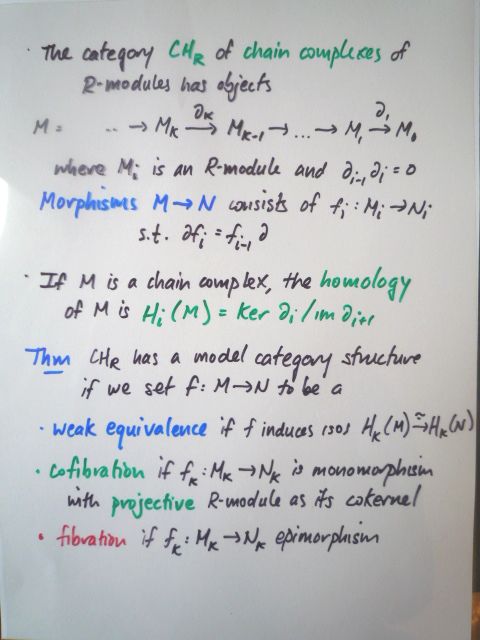 · The category CH_R of chain complexes of
R-modules has objects
M = ·· → M_K ∂_K→ M_K-1 → ... → M_1 ∂_1→ M_0
where M_i is an R-module and ∂_i-1 ∂_i = 0
Morphisms M → N consists of f_i : M_i → N_i
s.t. ∂f_i = f_i-1 ∂
· If M is a chain complex, the homology
of M is H_i(M) = ker ∂_i / im ∂_i+1
Thm CH_R has a model category structure
if we set f: M → N to be a
· weak equivalence if f induces isos H_K(M) ≅→ H_K(N)
· cofibration if f_K : M_K → N_K is monomorphism
with projective R-module as its cokernel
· fibration if f_K : M_K → N_K epimorphism